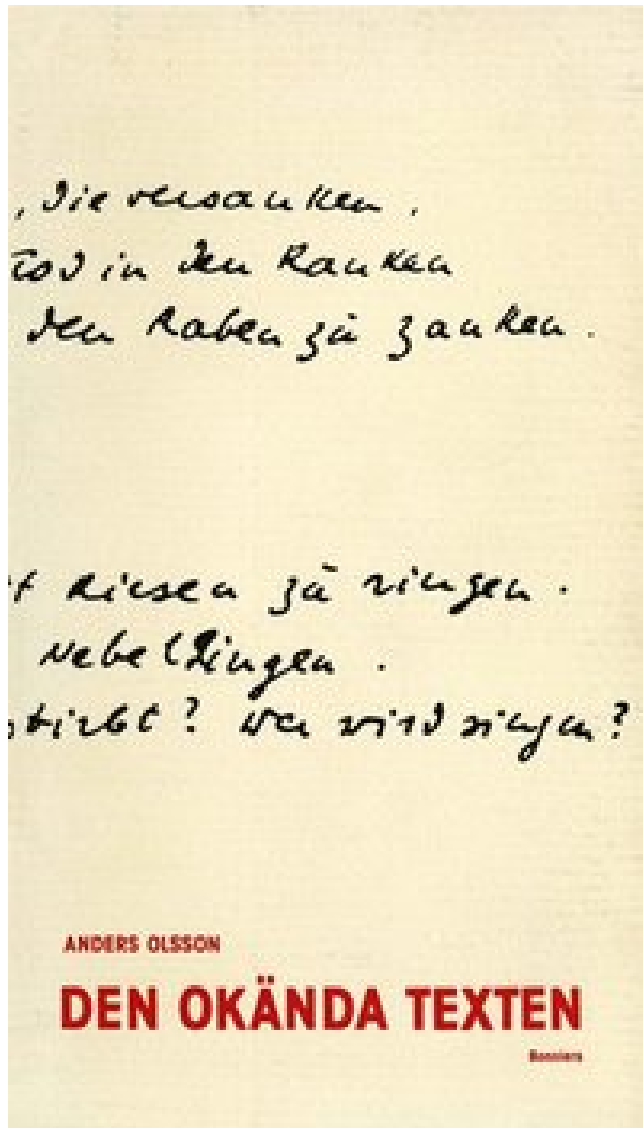 , die versanken.
Tod in den Ranken
den Raben zu zanken.
t Riesen zu ringen.
Nebeldingen.
stirbt? Wer wird singen?
ANDERS OLSSON
DEN OKÄNDA TEXTEN
Bonniers